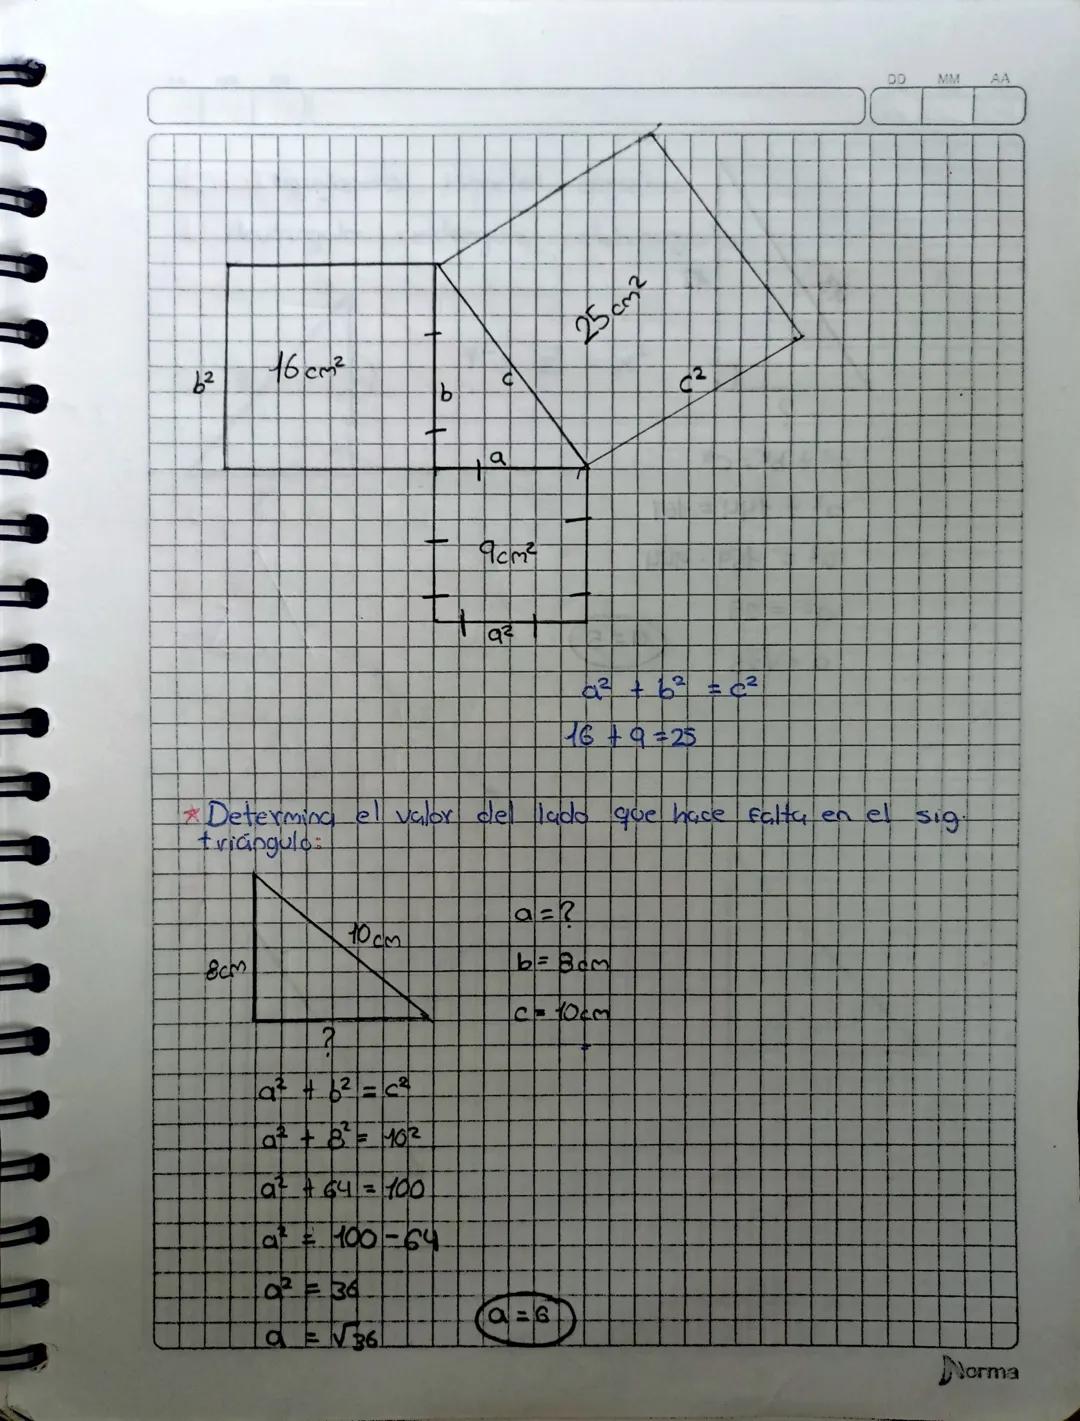 DD MM AA
25cm²
16cm²
b²
b
c
c²
a
9cm²
a²
a² + b² = c²
16 + 9 = 25
*Determina el valor del lado que hace falta en el sig.
triángulo:
10cm
8cm
?
a = ?
b = 8cm
c = 10cm
a² + b² = c²
a² + 8² = 10²
a² + 64 = 100
a² = 100 - 64
a² = 36
a = √36
a = 6
Norma